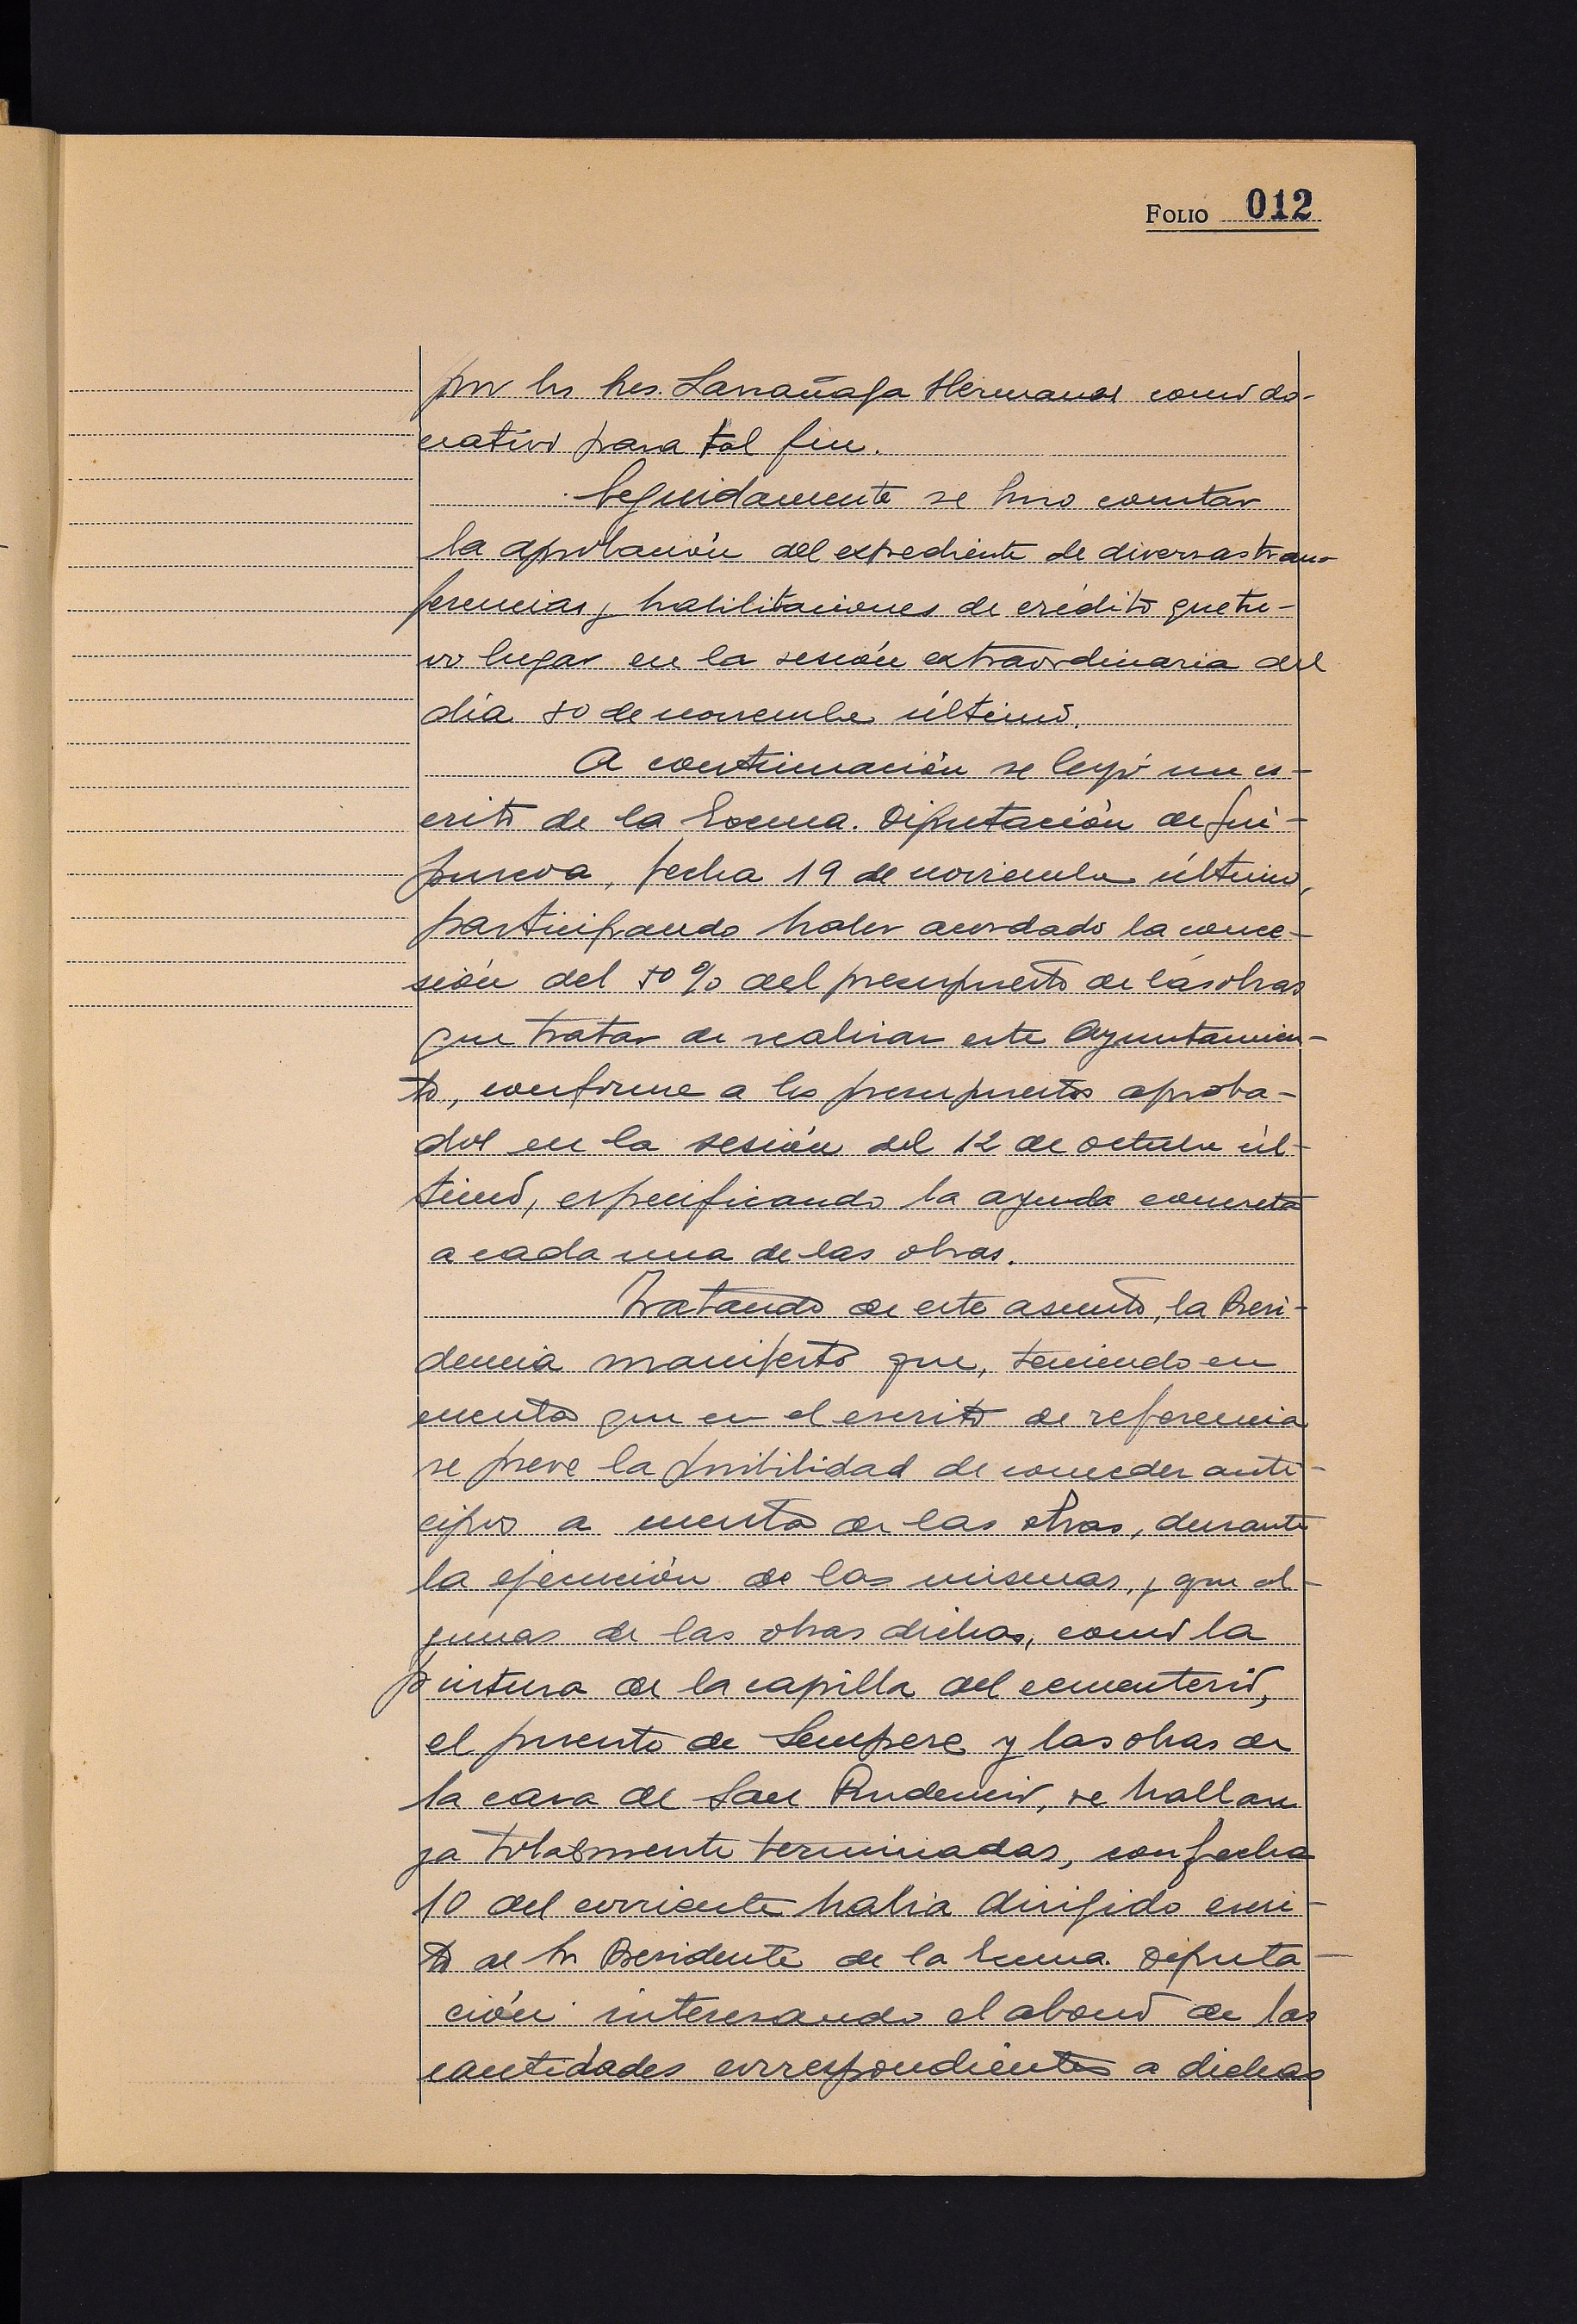 FOLIO 012
por los Sres. Larrañaga Hermanos como do-
nativo para tal fin.
Seguidamente se hizo constar
la aprobación del expediente de diversas trans-
ferencias y habilitaciones de crédito que tu-
vo lugar en la sesión extraordinaria del
día 30 de noviembre último.
A continuación se leyó un es-
crito de la Excma. Diputación de Gui-
púzcoa, fecha 19 de noviembre último,
participando haber acordado la conce-
sión del 50% del presupuesto de las obras
que tratar de realizar este Ayuntamien-
to, conforme a los presupuestos aproba-
dos en la sesión del 12 de octubre úl-
timo, especificando la ayuda concreta
a cada una de las obras.
Tratando de este asunto, la Presi-
dencia manifestó que, teniendo en
cuenta que en el escrito de referencia
se preve la posibilidad de conceder anti-
cipos a cuenta de las obras, durante
la ejecución de las mismas, y que al-
gunas de las obras dichas, como la
pintura de la capilla del cementerio,
el puente de Sempere y las obras de
la casa de San Prudencio, se hallan
ya totalmente terminadas, con fecha
10 del corriente había dirigido escri-
to al Sr Presidente de la Excma. Diputa-
ción interesando el abono de las
cantidades correspondientes a dichas